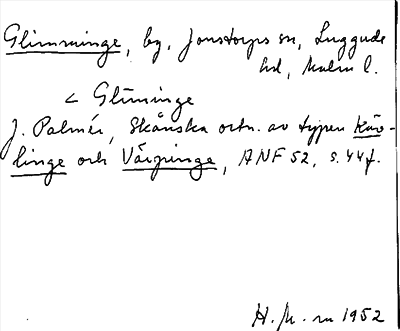 Glimminge, by, Jonstorps sn, Luggude
hd, Malm l.
< Gliminge
J. Palmér, Skånska ortn. av typen Käv-
linge och Värpinge, ANF 52, s. 44f.
H. M. 1952